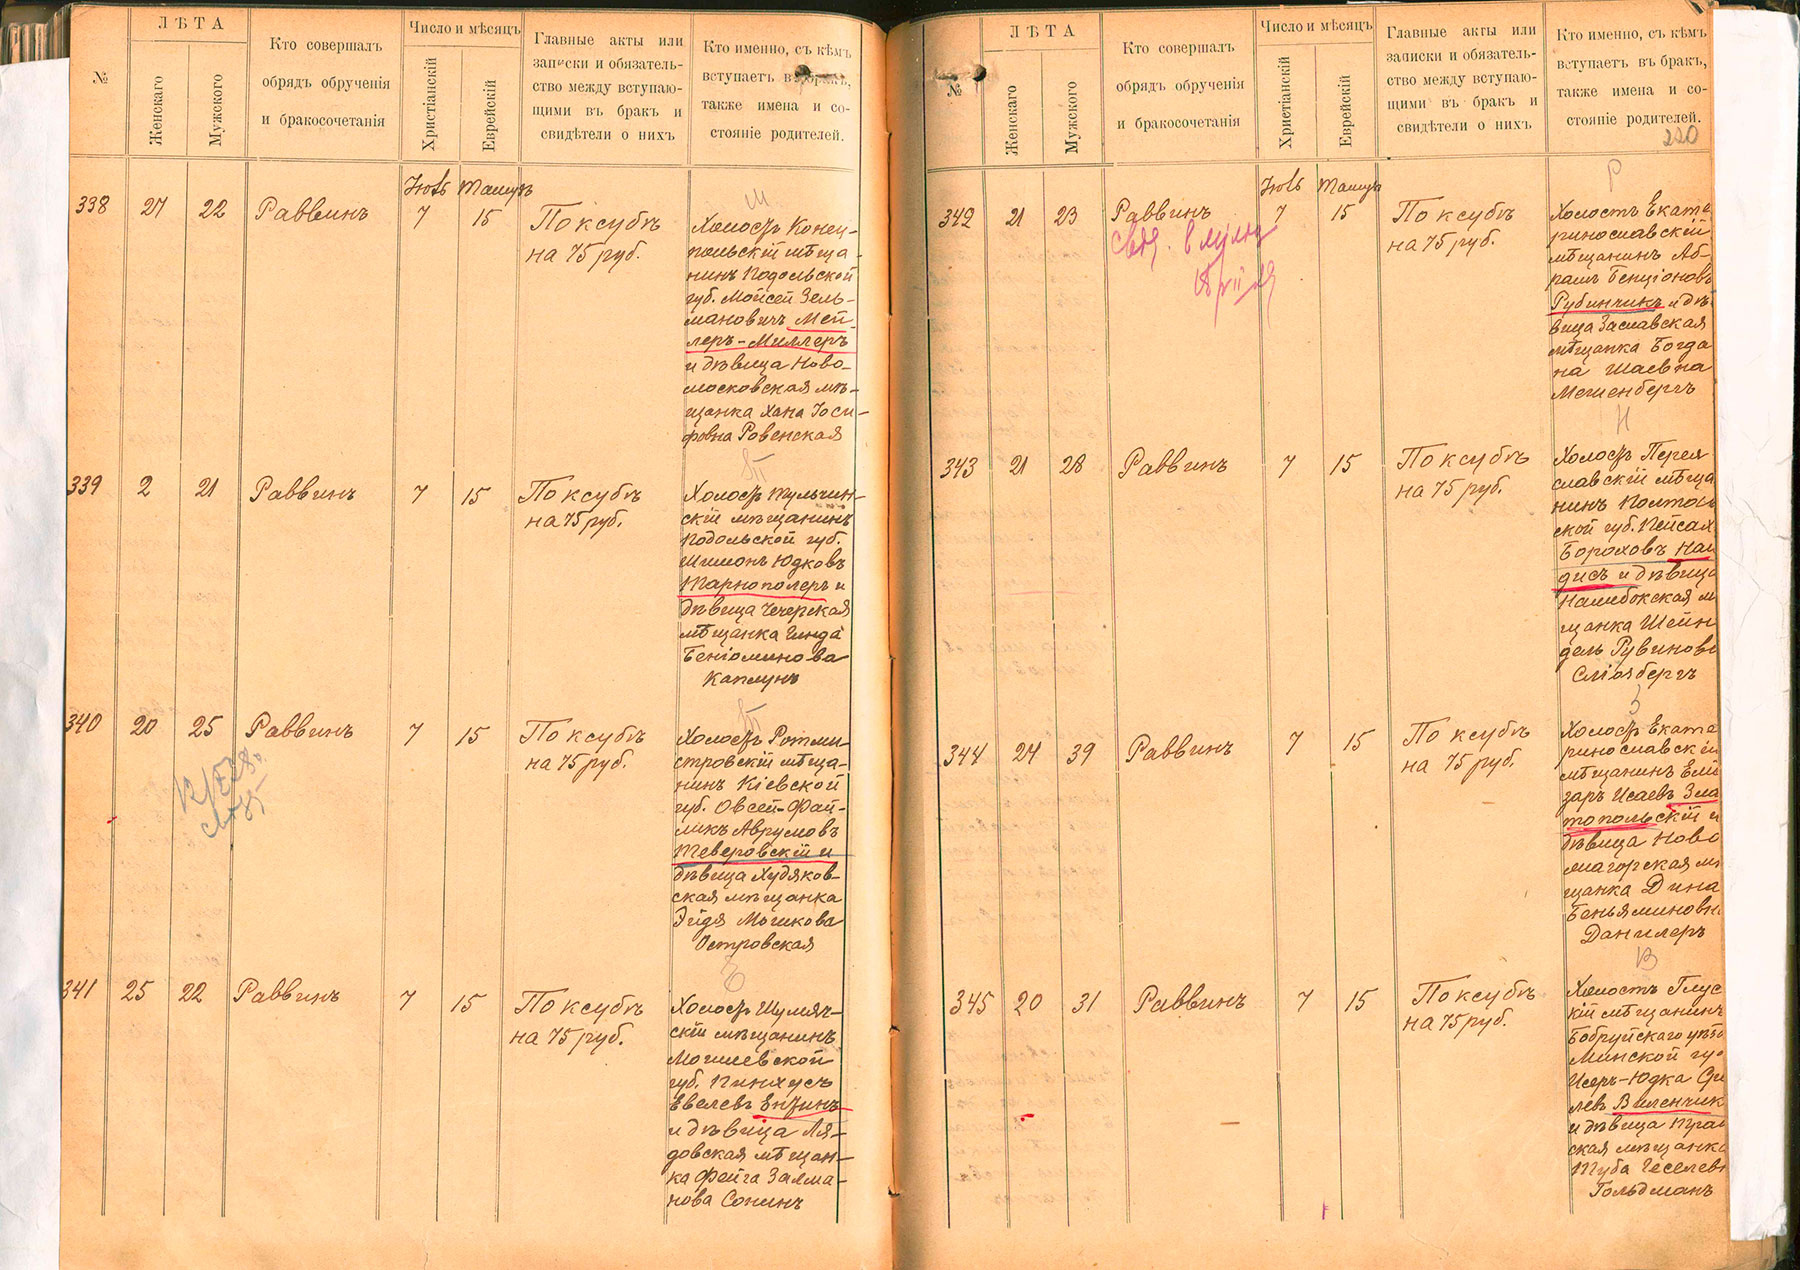 №
ЛѢТА
Женскаго
Мужского
Кто совершалъ
обрядъ обрученія
и бракосочетанія
Число и мѣсяцъ
Христіанскій
Еврейскій
Главные акты или
записки и обязатель-
ство между вступаю-
щими въ бракъ и
свидѣтели о нихъ
Кто именно, съ кѣмъ
вступаетъ въ бракъ,
также имена и со-
стояніе родителей.
338
22
Раввинъ
7
15
По ксубѣ
на 75 руб.
М
Холостъ Конец-
польскій мѣща-
нинъ Подольской
губ. Мойсей Зель-
мановичъ Мей-
леръ-Миллеръ
и дѣвица Ново-
московская мѣ-
щанка Хана Іоси-
фовна Ровенская
339
2
21
Раввинъ
7
15
По ксубѣ
на 75 руб.
Холостъ Тульчин-
скій мѣщанинъ
Подольской губ.
Шимонъ Юдковъ
Тарнополеръ и
дѣвица Чечерская
мѣщанка Гинда
Беніоминова
Каплунъ
340
20
25
Раввинъ
7
15
По ксубѣ
на 75 руб.
Холостъ Ротми-
стровскій мѣща-
нинъ Кіевской
губ. Овсей-Фай-
ликъ Аврумовъ
Теверовскій и
дѣвица Худяков-
ская мѣщанка
Эйдя Мошкова
Островская
341
25
22
Раввинъ
7
15
По ксубѣ
на 75 руб.
Холостъ Шумяч-
скій мѣщанинъ
Могилевской
губ. Пинхусъ
Евелевъ
и дѣвица Ля-
довская мѣщан-
ка Фейга Залма-
нова Сонинъ
№
ЛѢТА
Женскаго
Мужского
Кто совершалъ
обрядъ обрученія
и бракосочетанія
Число и мѣсяцъ
Христіанскій
Еврейскій
Главные акты или
записки и обязатель-
ство между вступаю-
щими въ бракъ и
свидѣтели о нихъ
Кто именно, съ кѣмъ
вступаетъ въ бракъ,
также имена и со-
стояніе родителей.
220
342
21
23
Раввинъ
7
15
По ксубѣ
на 75 руб.
Р
Холостъ Екате
ринославскій
мѣщанинъ Аб-
рамъ Бенціоновъ
Рубинчикъ и дѣ
вица Заславская
мѣщанка Богда
на Шаевна
Мешенбергъ
343
21
28
Раввинъ
7
15
По ксубѣ
на 75 руб.
Н
Холостъ Перея
славскій мѣща
нинъ Полтав
ской губ. Пейсах
Бороховъ Наи
дисъ и дѣвица
Налибокская м
щанка Шейн
дель Рувинов
344
39
Раввинъ
7
15
По ксубѣ
на 75 руб.
З
Холостъ Екате
ринославскій
мѣщанинъ Елі
заръ Исаевъ Зла
топольскій и
дѣвица Ново
щанка Дина
Беньяминовн
Дангилеръ
345
20
31
Раввинъ
7
15
По ксубѣ
на 75 руб.
В
Холостъ Глус
кій мѣщанинъ
Бобруйскаго уѣз
Минской гу
Исеръ-Юдка Сро
левъ Виленчик
и дѣвица
ская мѣщанка
Туба Геселевн
Гольдманъ